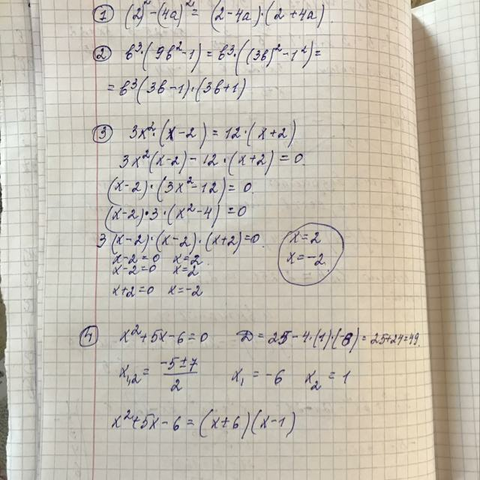 ① (2)² - (4a)² = (2-4a)·(2+4a)
② b³(9b²-1) = b³·((3b)²-1²) =
= b³(3b-1)·(3b+1)
③ 3x²·(x-2) = 12·(x+2)
3x²(x-2) - 12·(x+2) = 0.
(x-2)·(3x²-12) = 0.
(x-2)·3·(x²-4) = 0
3(x-2)·(x-2)·(x+2) = 0. x=2
x-2=0 x=2 x=-2.
x-2=0 x=2
x+2=0 x=-2
④ x²+5x-6=0 D = 25-4·(1)·(-6) = 25+24=49.
x₁,₂ = (-5±7)/2 x₁ = -6 x₂ = 1
x²+5x-6 = (x+6)(x-1)